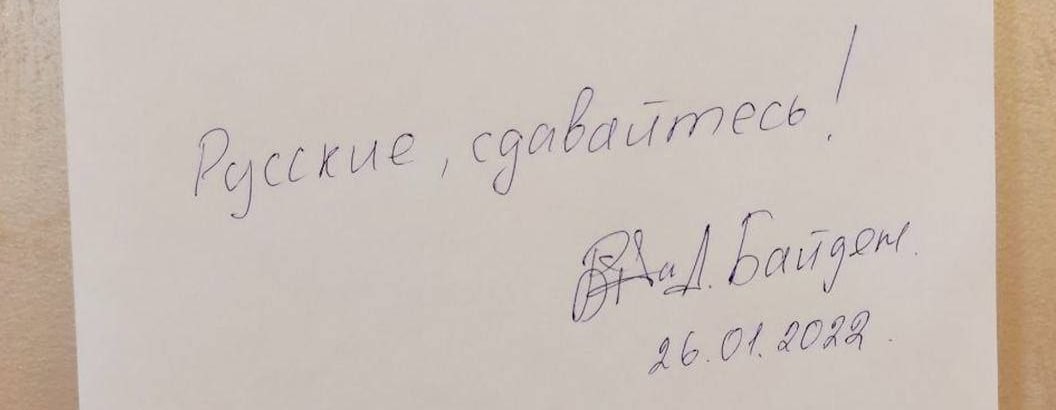 Русские, сдавайтесь!
Д. Байден.
26.01.2022.